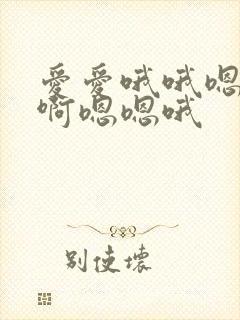 爱爱哦哦嗯
啊嗯嗯哦
别使坏